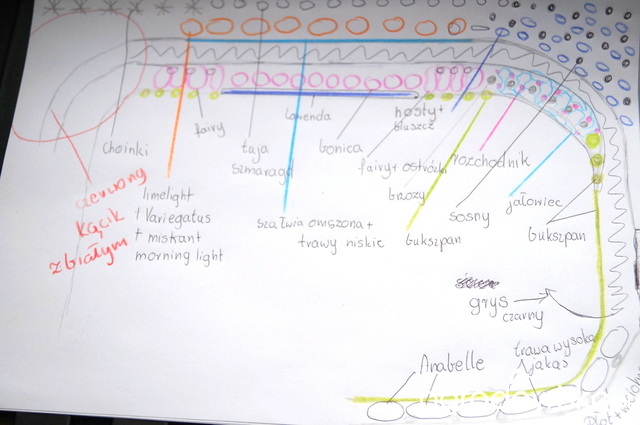 choinki
fairy
tuja
szmaragd
lawenda
bonica
hosty+
bluszcz
fairy+ ostróżki
rozchodnik
brzozy
sosny
jałowiec
bukszpan
bukszpan
czerwony
kącik
z białym
limelight
+ Variegatus
+ miskant
morning light
szałwia omszona +
trawy niskie
grys
czarny
Anabelle
trawa wysoka
jakaś